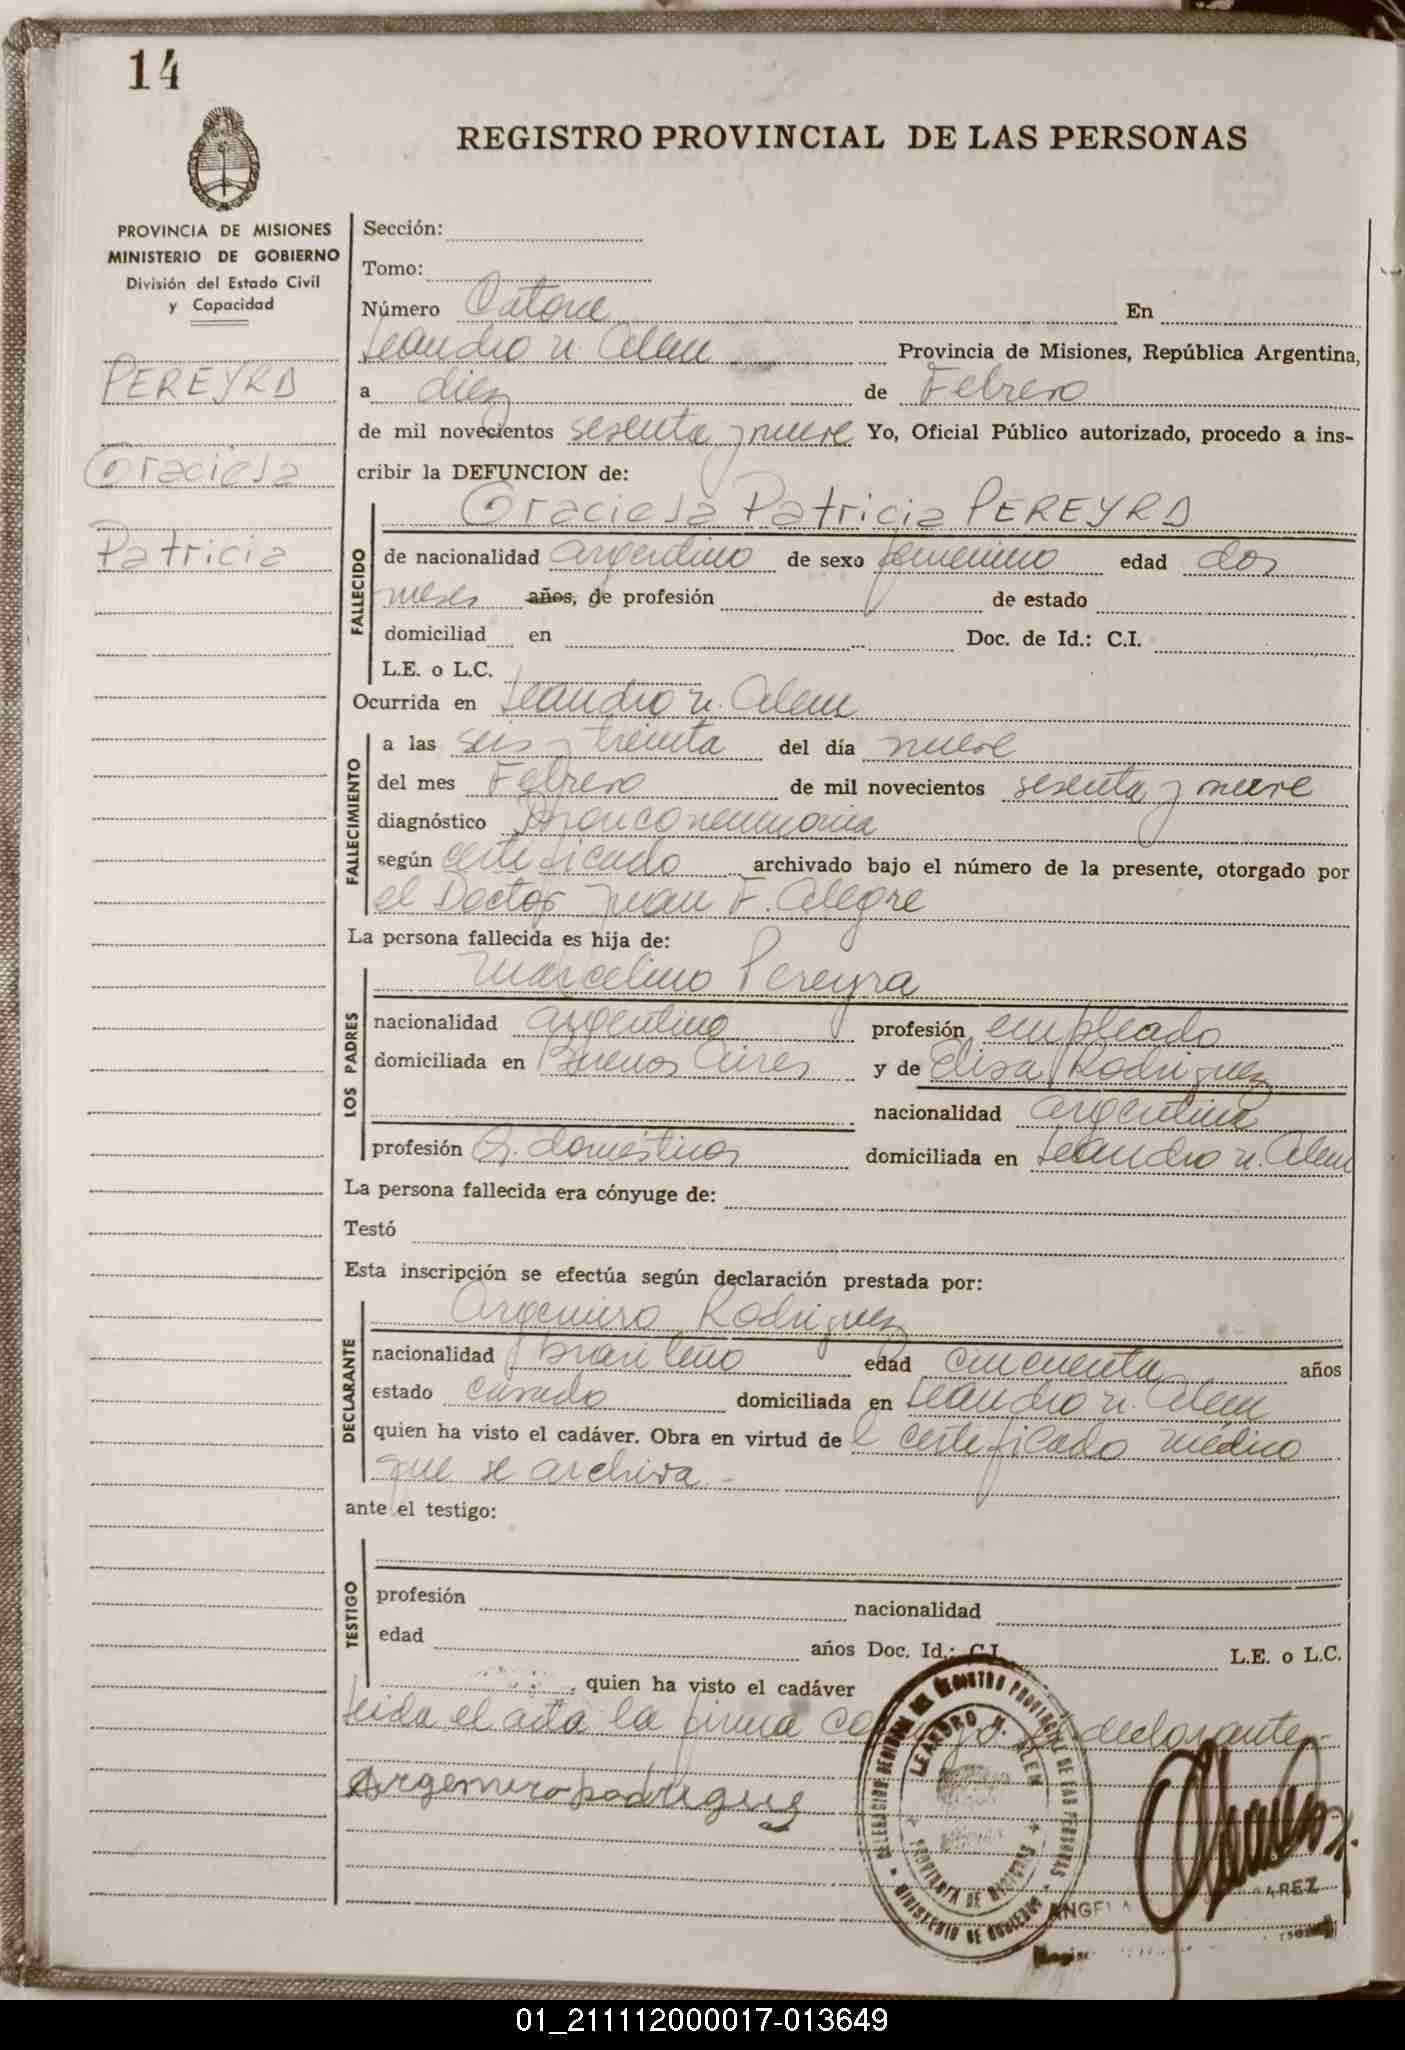 14
REGISTRO PROVINCIAL DE LAS PERSONAS
PROVINCIA DE MISIONES
MINISTERIO DE GOBIERNO
División del Estado Civil
y Capacidad
PEREYRA
Graciela
Patricia
Sección:
Tomo:
Número Catorce En
Leandro N. Alem Provincia de Misiones, República Argentina,
a diez de Febrero
de mil novecientos sesenta y nueve Yo, Oficial Público autorizado, procedo a ins-
cribir la DEFUNCION de:
Graciela Patricia PEREYRA
FALLECIDO
de nacionalidad argentina de sexo femenino edad dos
meses años, de profesión de estado
domiciliad en Doc. de Id.: C.I.
L.E. o L.C.
Ocurrida en Leandro N. Alem
FALLECIMIENTO
a las seis y treinta del día nueve
del mes Febrero de mil novecientos sesenta y nueve
diagnóstico Bronconeumonia
según certificado archivado bajo el número de la presente, otorgado por
el Doctor Juan F. Alegre
La persona fallecida es hija de:
LOS PADRES
Marcelino Pereyra
nacionalidad argentino profesión empleado
domiciliada en Buenos Aires y de Elisa Rodriguez
nacionalidad argentina
profesión Q. domésticos domiciliada en Leandro N. Alem
La persona fallecida era cónyuge de:
Testó
Esta inscripción se efectúa según declaración prestada por:
DECLARANTE
Argemiro Rodriguez
nacionalidad brasileño edad cincuenta años
estado casado domiciliada en Leandro N. Alem
quien ha visto el cadáver. Obra en virtud de l certificado médico
que se archiva.-
ante el testigo:
TESTIGO
profesión nacionalidad
edad años Doc. Id.: C.I. L.E. o L.C.
, quien ha visto el cadáver
Leida el acta la firma conmigo el declarante.-
Argemiro Rodriguez
DELEGACION REGISTRO PROVINCIAL DE LAS PERSONAS
LEANDRO N. ALEM
PROVINCIA DE MISIONES
MINISTERIO DE GOBIERNO
01_211112000017-013649